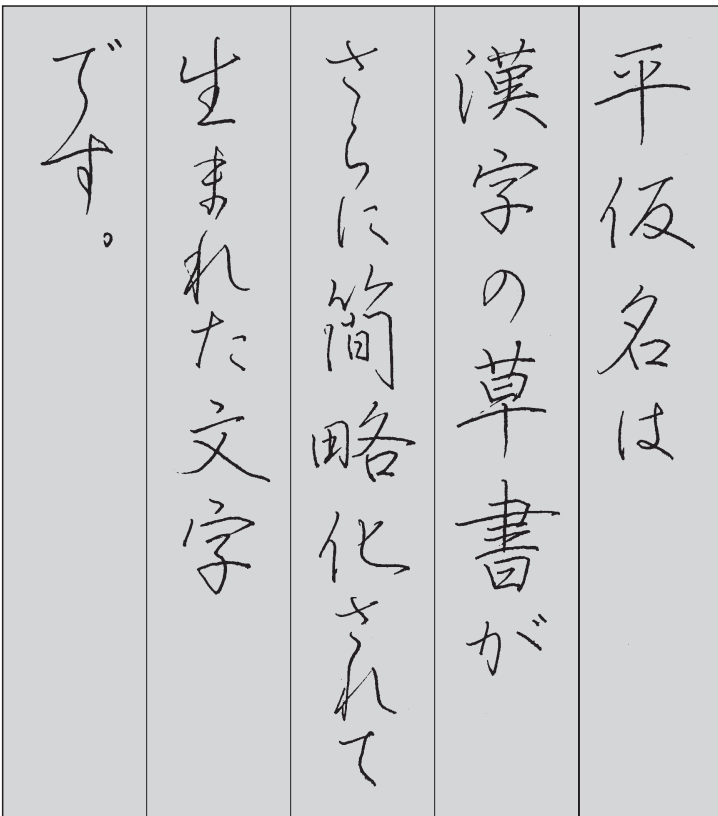 平仮名は
漢字の草書が
さらに簡略化されて
生まれた文字
です。